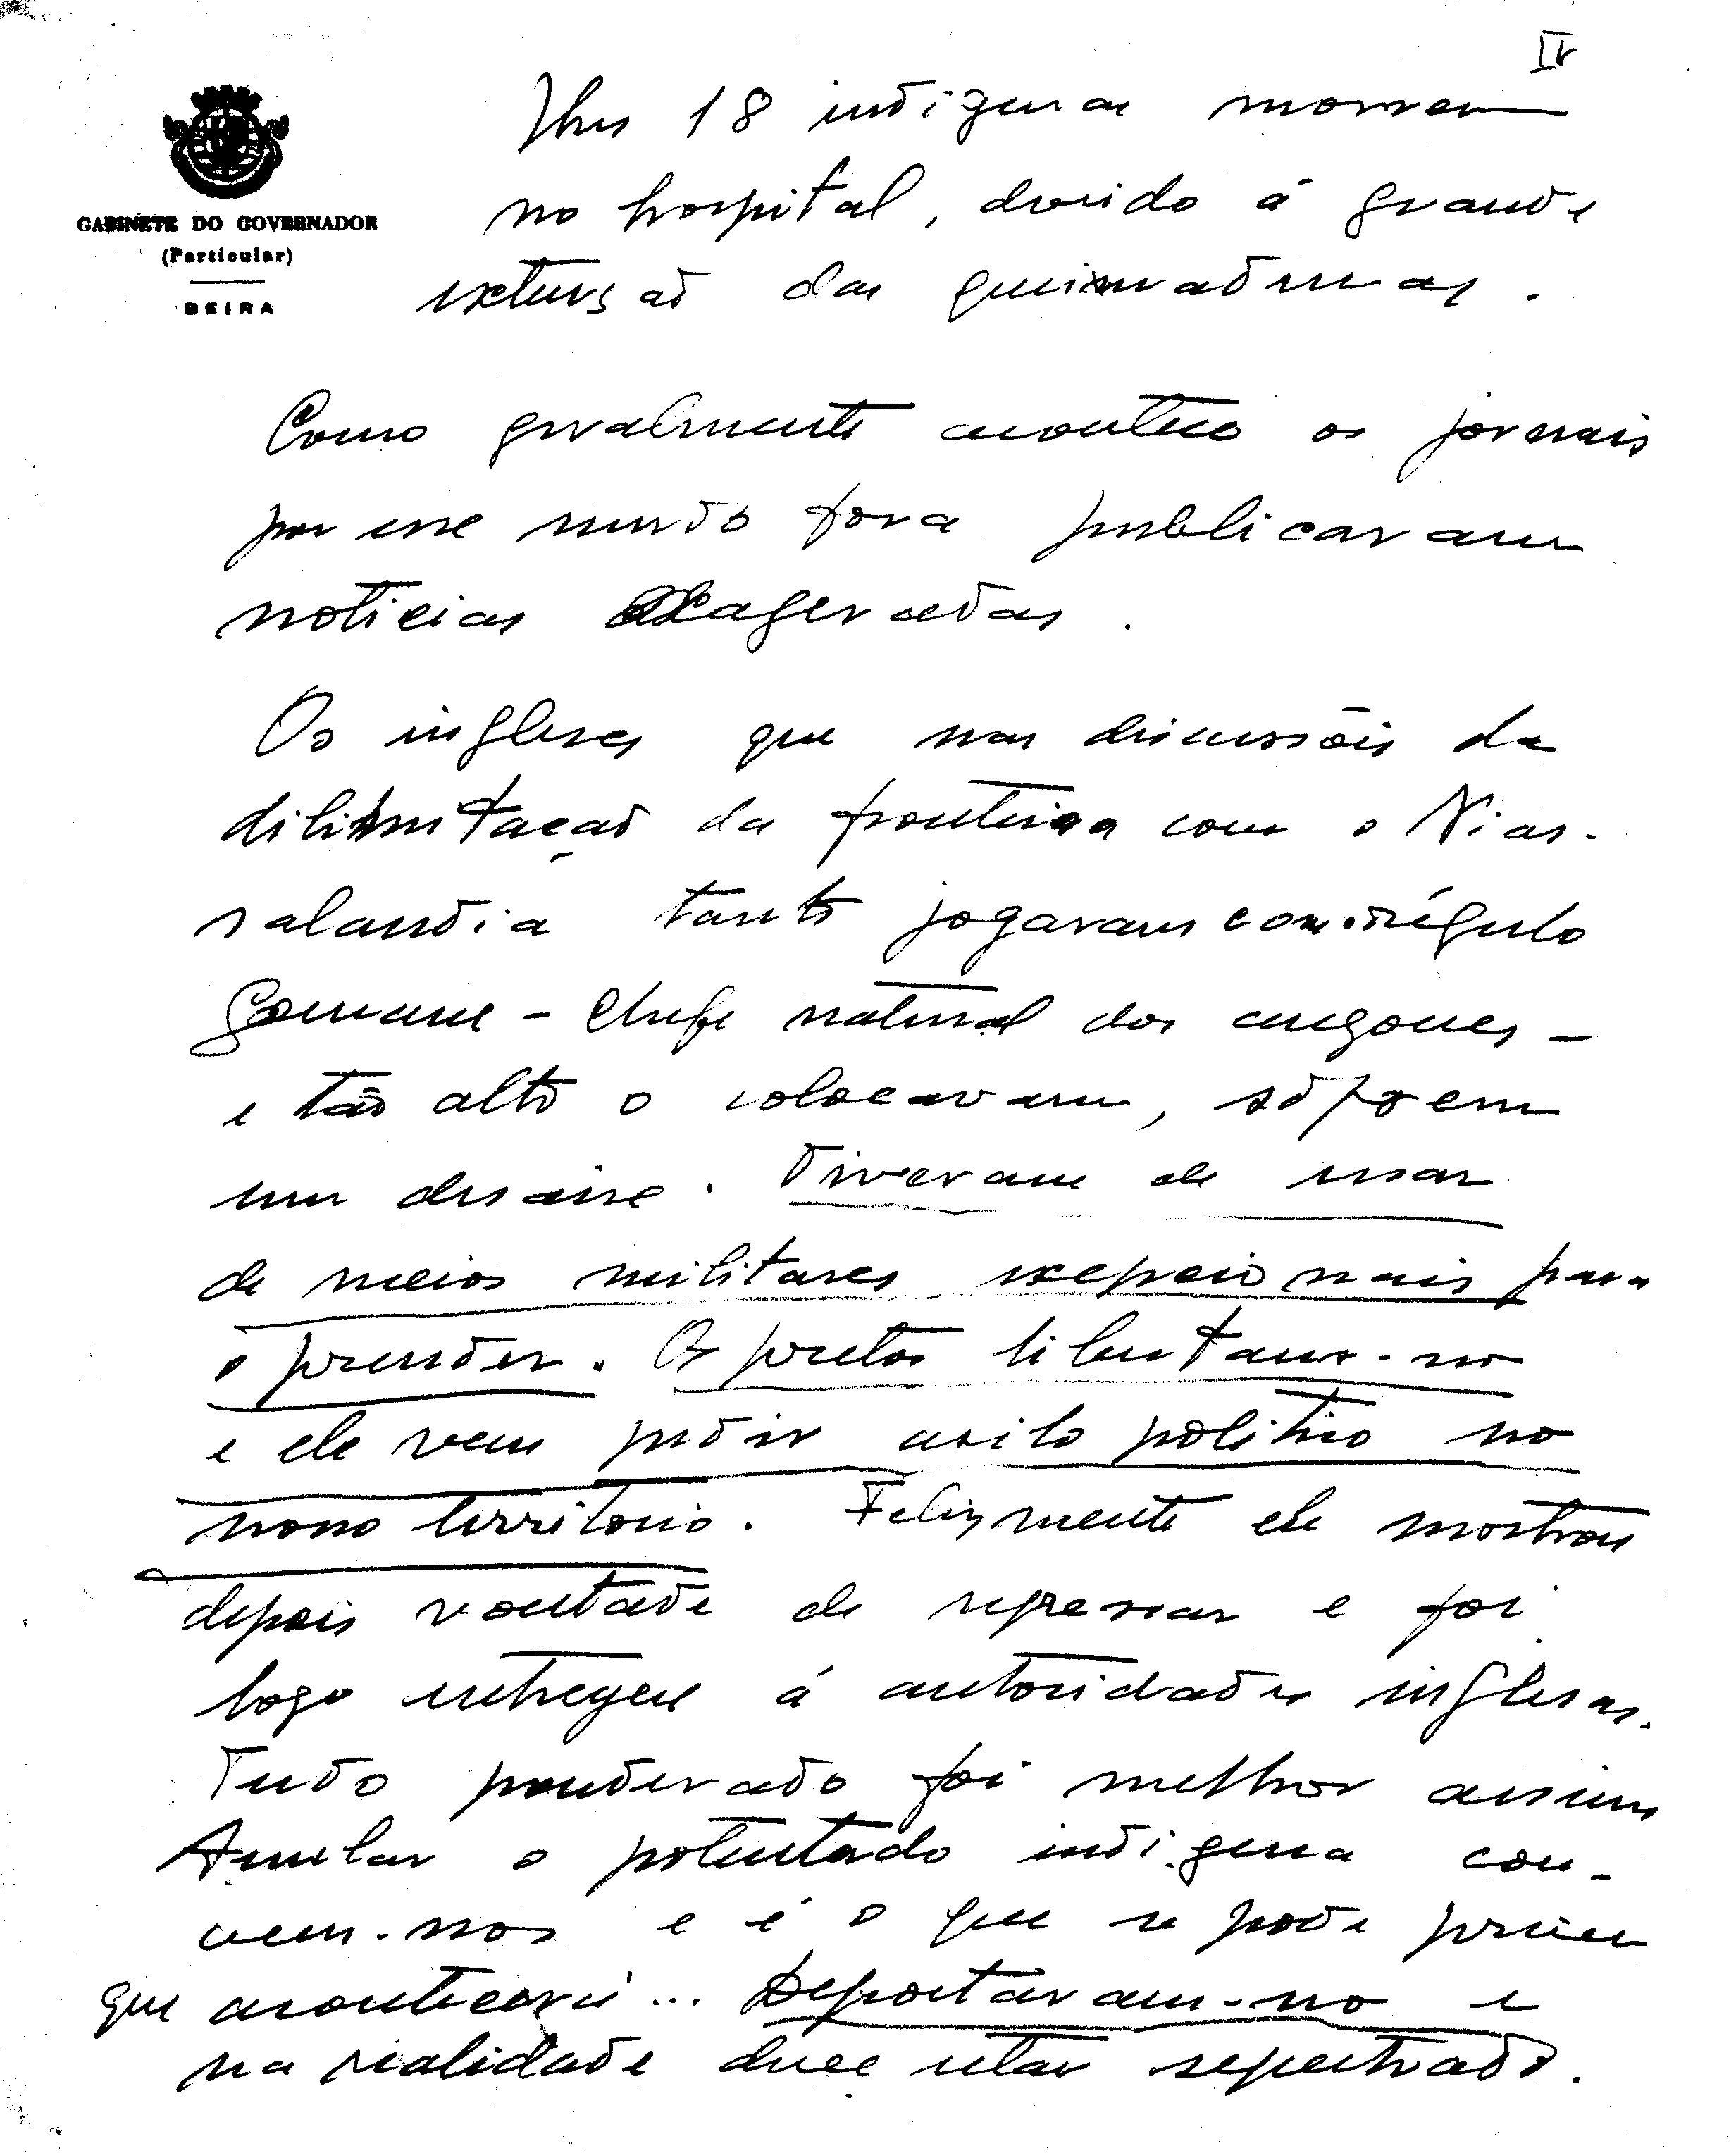 IV
GABINETE DO GOVERNADOR
(Particular)
BEIRA
Uns 18 indigenas morrem
no hospital, devido á grande
extensão das queimaduras.
Como geralmente acontece os jornais
por esse mundo fora publicaram
noticias exageradas.
Os ingleses que nas discussões da
dilimitação da fronteira com o Nias-
salandia tanto jogavam com o régulo
Gomane - Chefe natural dos angones -
e tão alto o colocavam, sofrem
um desaire. Tiveram de usar
de meios militares excepcionais para
o prender. Os pretos libertam-no
e ele vem pedir asilo politico no
nosso territorio. Felizmente ele mostrou
depois vontade de regressar e foi
logo entregue á autoridades inglesas.
Tudo ponderado foi melhor assim
Anular o potentado indigena con-
vem-nos e é o que se pode prever
que acontecerá... Deportavam-no e
na realidade deve estar sepultado.